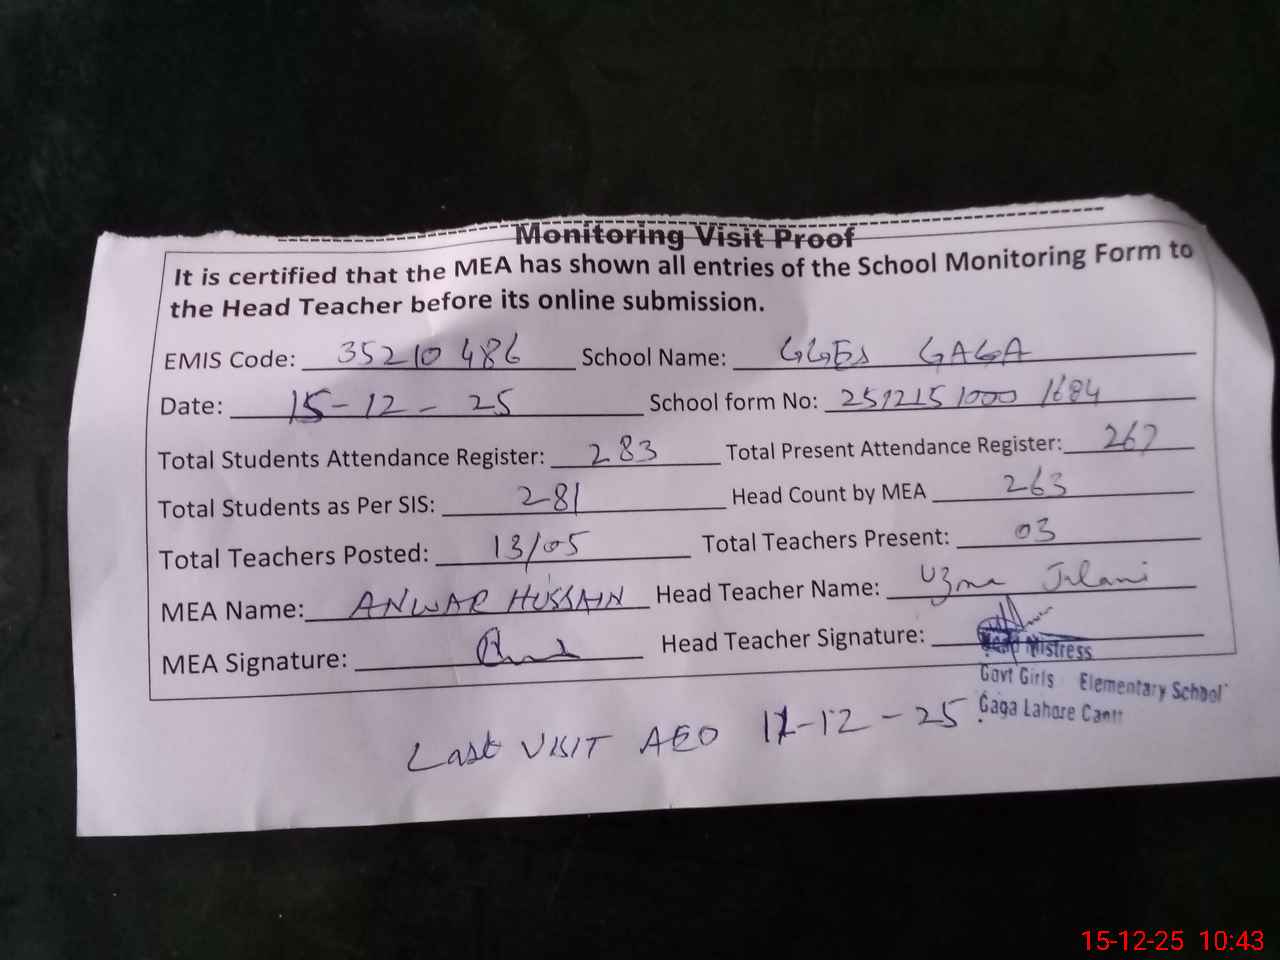 Monitoring Visit Proof
It is certified that the MEA has shown all entries of the School Monitoring Form to
the Head Teacher before its online submission.
EMIS Code: 35210 486 School Name: GGES GAGA
Date: 15-12-25 School form No: 2512151000 1684
Total Students Attendance Register: 283 Total Present Attendance Register: 267
Total Students as Per SIS: 281 Head Count by MEA 263
Total Teachers Posted: 13/05 Total Teachers Present: 03
MEA Name: ANWAR HUSSAIN Head Teacher Name: Uzma Jilani
MEA Signature: Head Teacher Signature:
Head Mistress
Govt Girls Elementary School
Gaga Lahore Cantt
Last VISIT AEO 11-12-25
15-12-25 10:43